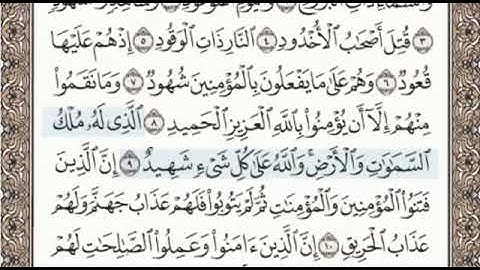 وَٱلسَّمَآءِ ذَاتِ ٱلْبُرُوجِ
٣ قُتِلَ أَصْحَٰبُ ٱلْأُخْدُودِ ٤ ٱلنَّارِ ذَاتِ ٱلْوَقُودِ ٥ إِذْ هُمْ عَلَيْهَا
قُعُودٌ ٦ وَهُمْ عَلَىٰ مَا يَفْعَلُونَ بِٱلْمُؤْمِنِينَ شُهُودٌ ٧ وَمَا نَقَمُوا۟
مِنْهُمْ إِلَّآ أَن يُؤْمِنُوا۟ بِٱللَّهِ ٱلْعَزِيزِ ٱلْحَمِيدِ ٨ ٱلَّذِى لَهُۥ مُلْكُ
ٱلسَّمَٰوَٰتِ وَٱلْأَرْضِ ۚ وَٱللَّهُ عَلَىٰ كُلِّ شَىْءٍ شَهِيدٌ ٩ إِنَّ ٱلَّذِينَ
فَتَنُوا۟ ٱلْمُؤْمِنِينَ وَٱلْمُؤْمِنَٰتِ ثُمَّ لَمْ يَتُوبُوا۟ فَلَهُمْ عَذَابُ جَهَنَّمَ وَلَهُمْ
عَذَابُ ٱلْحَرِيقِ ١٠ إِنَّ ٱلَّذِينَ ءَامَنُوا۟ وَعَمِلُوا۟ ٱلصَّٰلِحَٰتِ لَهُمْ